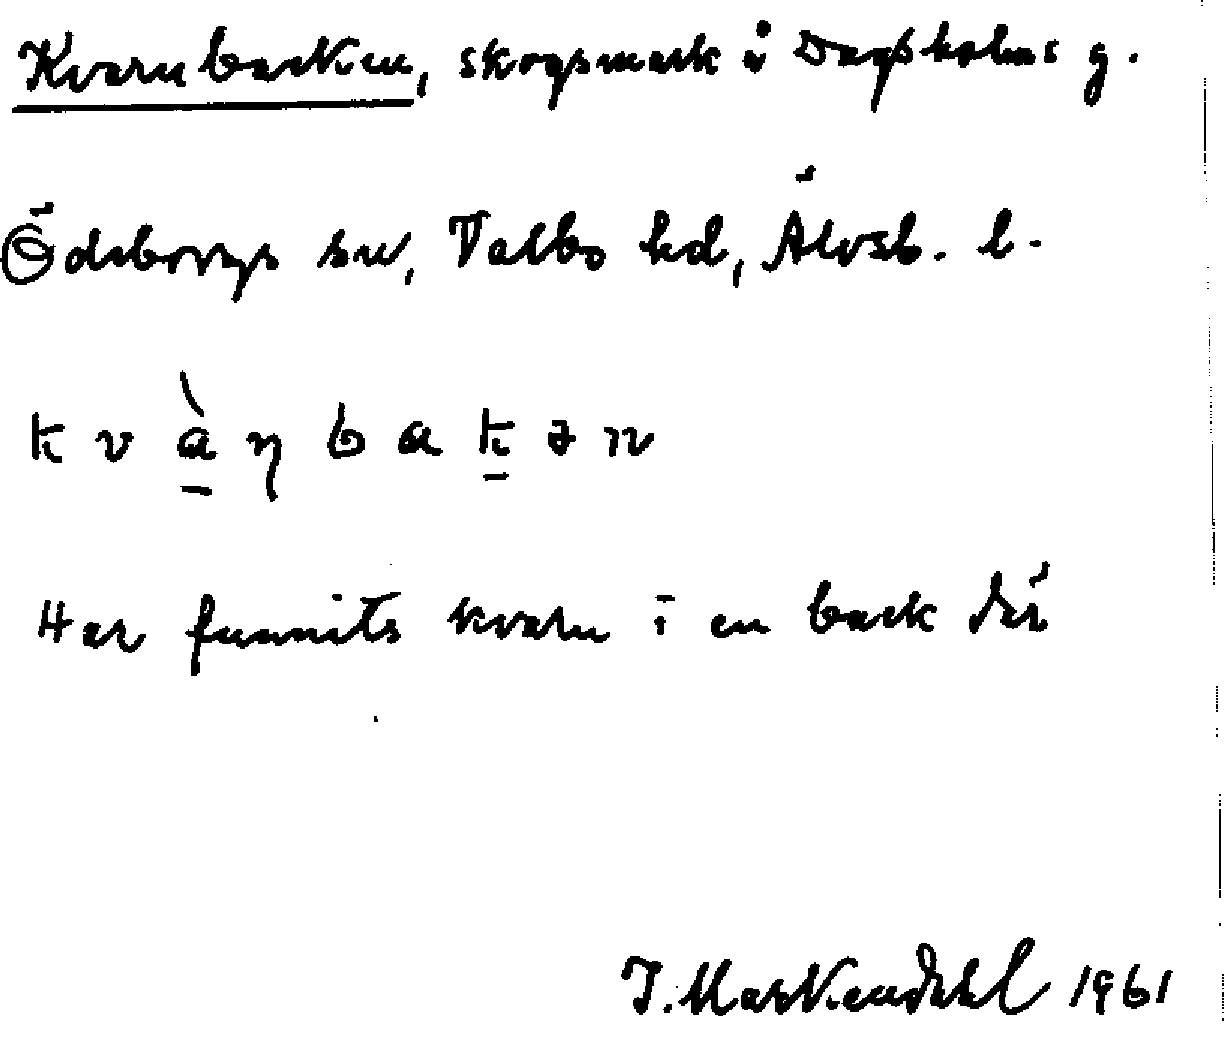 Kvarnbacken, skogsmark å Dagsholms g.
Ödeborgs sn, Valbo hd, Älvsb. l.
k v à η b a k ə n
Har funnits kvarn i en back där
I. Markendahl 1961